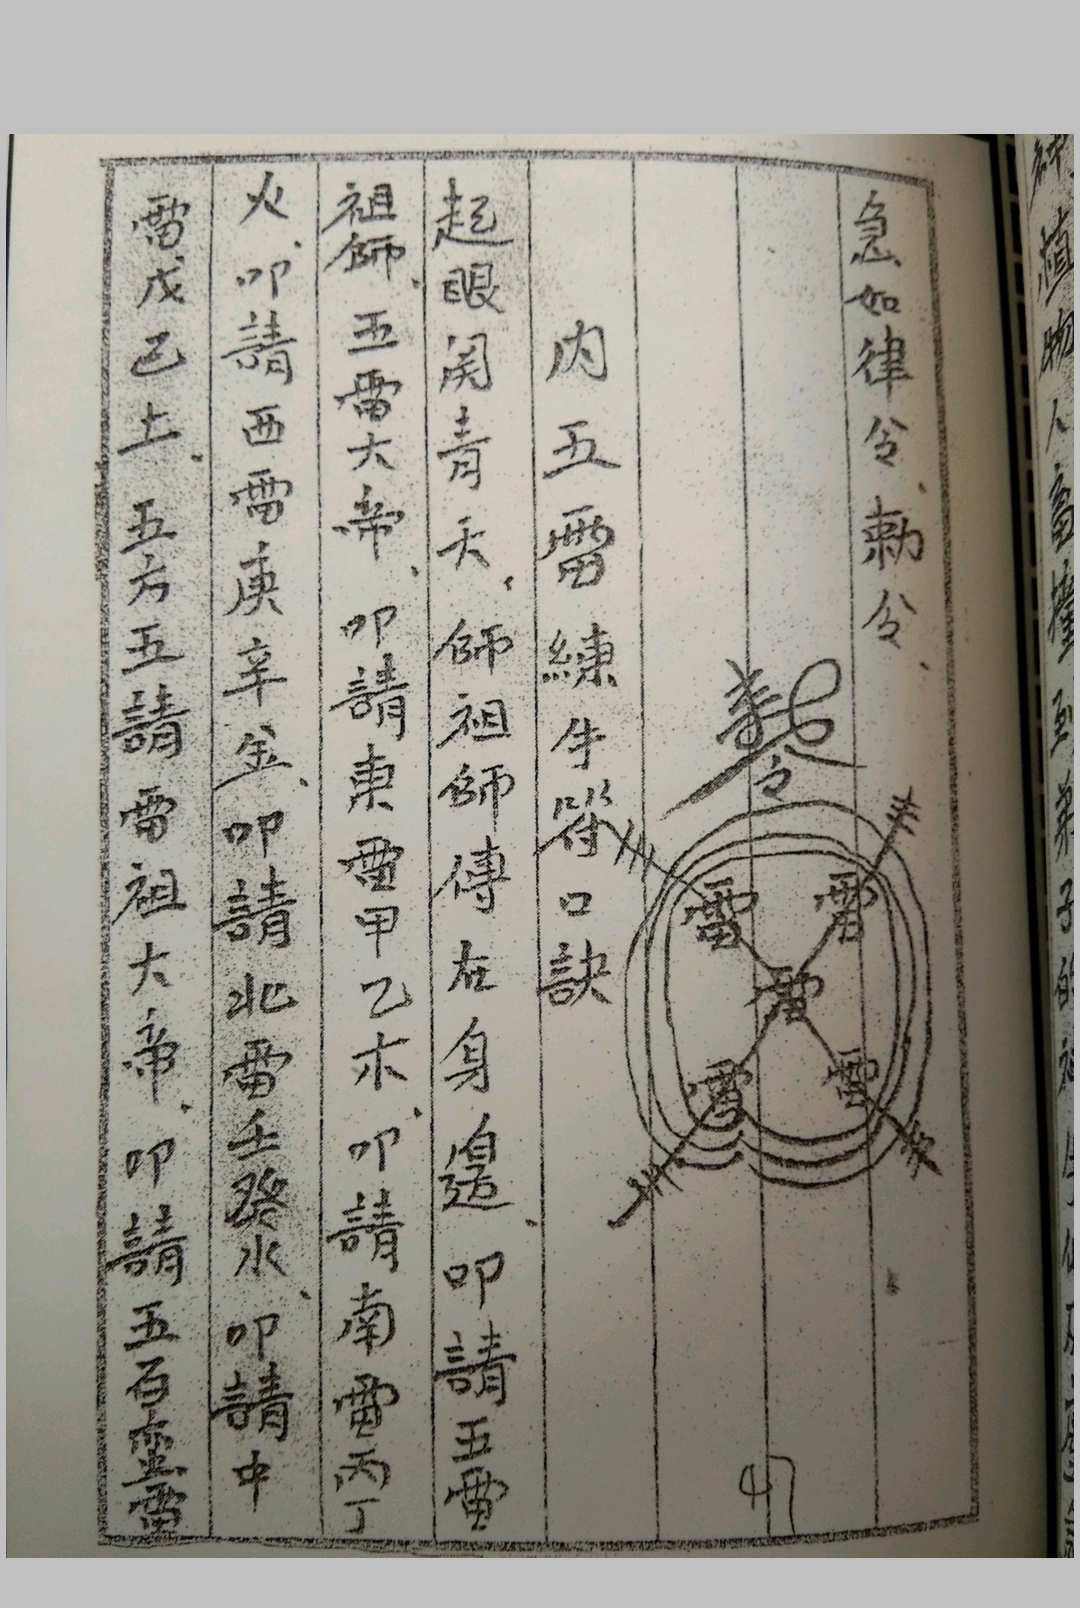 急如律令、勅令、
勅令
雷 雷
雷
雷 雷
47
内五雷練牛符口訣
起眼閞青天、師祖師傳在身邊、叩請五雷
祖師、五雷大帝、叩請東雷甲乙木、叩請南雷丙丁
火、叩請西雷庚辛金、叩請北雷壬癸水、叩請中
雷戊己土、五方五請雷祖大帝、叩請五百蛮雷